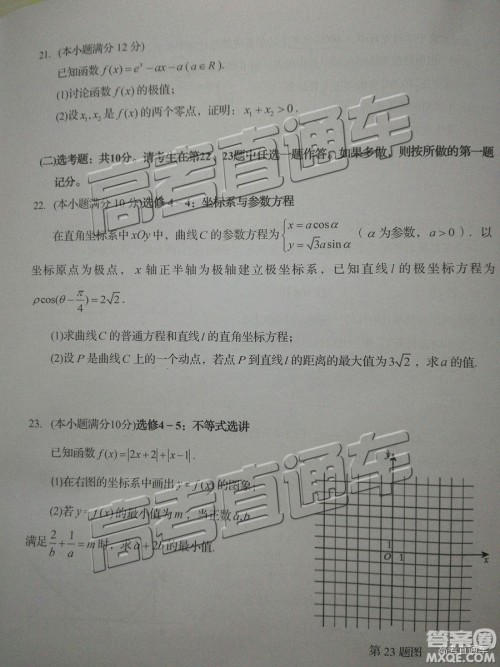 21. (本小题满分 12 分)
已知函数 f(x)=eˣ-ax-a(a∈R).
(1)讨论函数 f(x) 的极值;
(2)设 x₁,x₂ 是 f(x) 的两个零点,证明: x₁+x₂>0.
(二)选考题:共10分。请考生在第22、23题中任选一题作答。如果多做,则按所做的第一题
记分。
22. (本小题满分 10 分)选修 4-4:坐标系与参数方程
在直角坐标系中 xOy 中,曲线 C 的参数方程为 {x=acosα y=√3asinα (α为参数, a>0).以
坐标原点为极点, x 轴正半轴为极轴建立极坐标系,已知直线 l 的极坐标方程为
ρcos(θ-π/4)=2√2.
(1)求曲线 C 的普通方程和直线 l 的直角坐标方程;
(2)设 P 是曲线 C 上的一个动点,若点 P 到直线 l 的距离的最大值为 3√2,求 a 的值.
23. (本小题满分10分)选修4-5:不等式选讲
已知函数 f(x)=|2x+2|+|x-1|.
(1)在右图的坐标系中画出 y=f(x) 的图象;
(2)若 y=f(x) 的最小值为 m,当正数 a,b
满足 2/b+1/a=m 时,求 a+2b 的最小值.
y
1
O 1 x
第 23 题图
高考直通车
高考直通车
高考直通车
答案圈
MXQE.COM